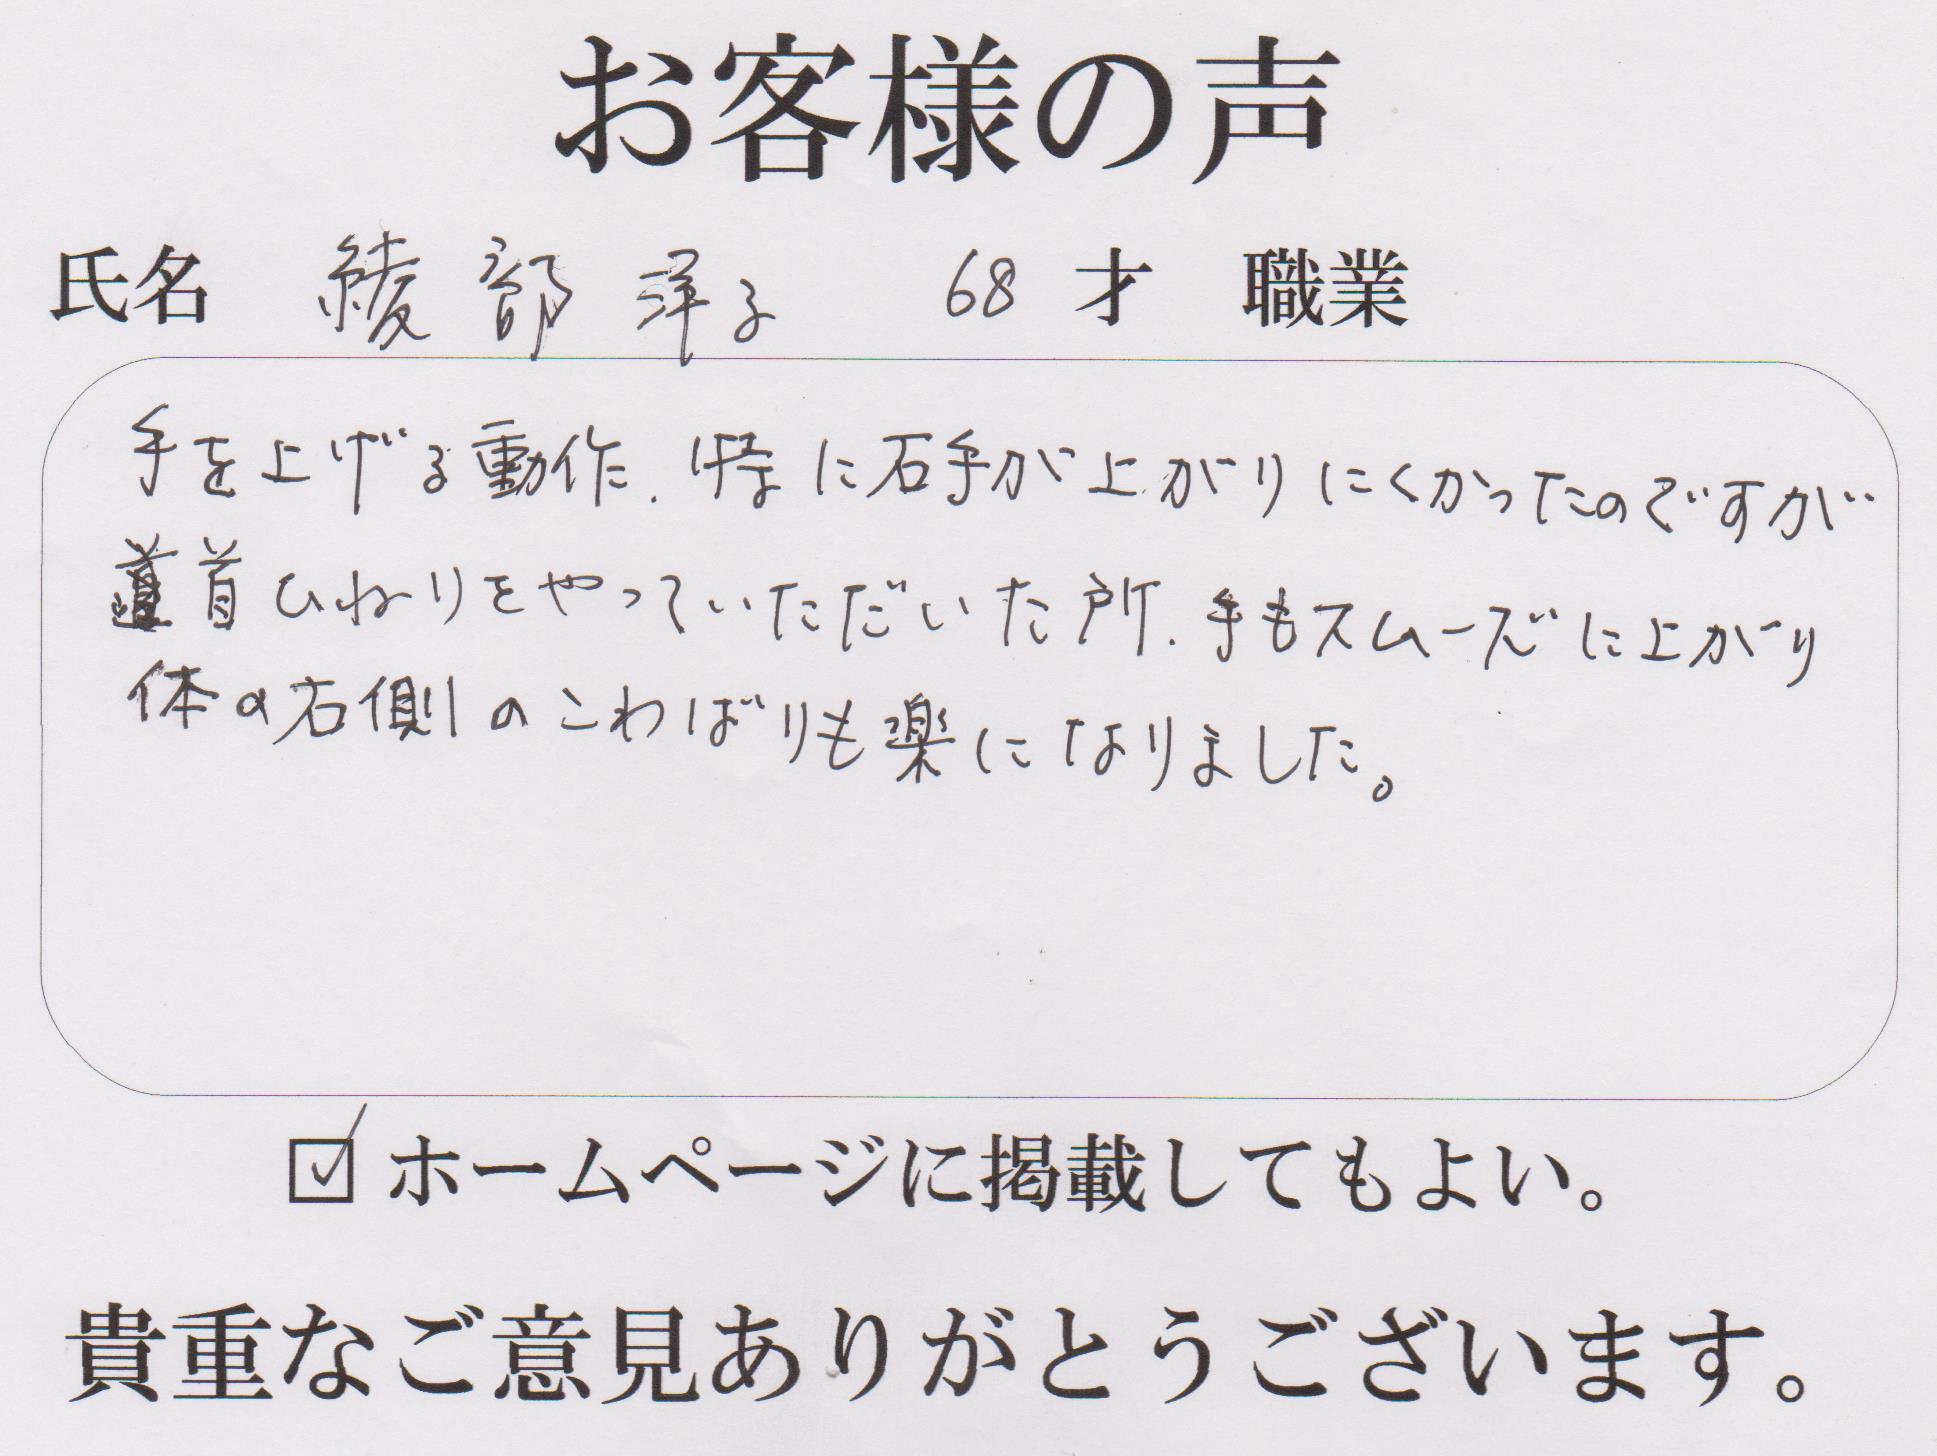 お客様の声
氏名 綾部洋子 68 才 職業
手を上げる動作、特に右手が上がりにくかったのですが
首ひねりをやっていただいた所、手もスムーズに上がり
体の右側のこわばりも楽になりました。
☑ ホームページに掲載してもよい。
貴重なご意見ありがとうございます。